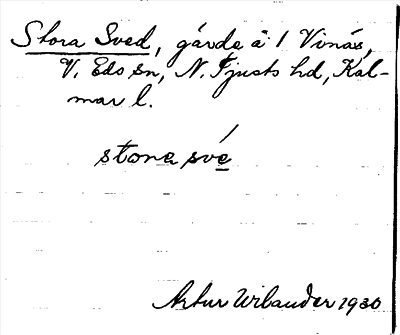 Stora Sved, gärde å 1 Vinäs,
V. Eds sn, N. Tjusts hd, Kal-
mar l.
stora své
Artur Wilander 1930